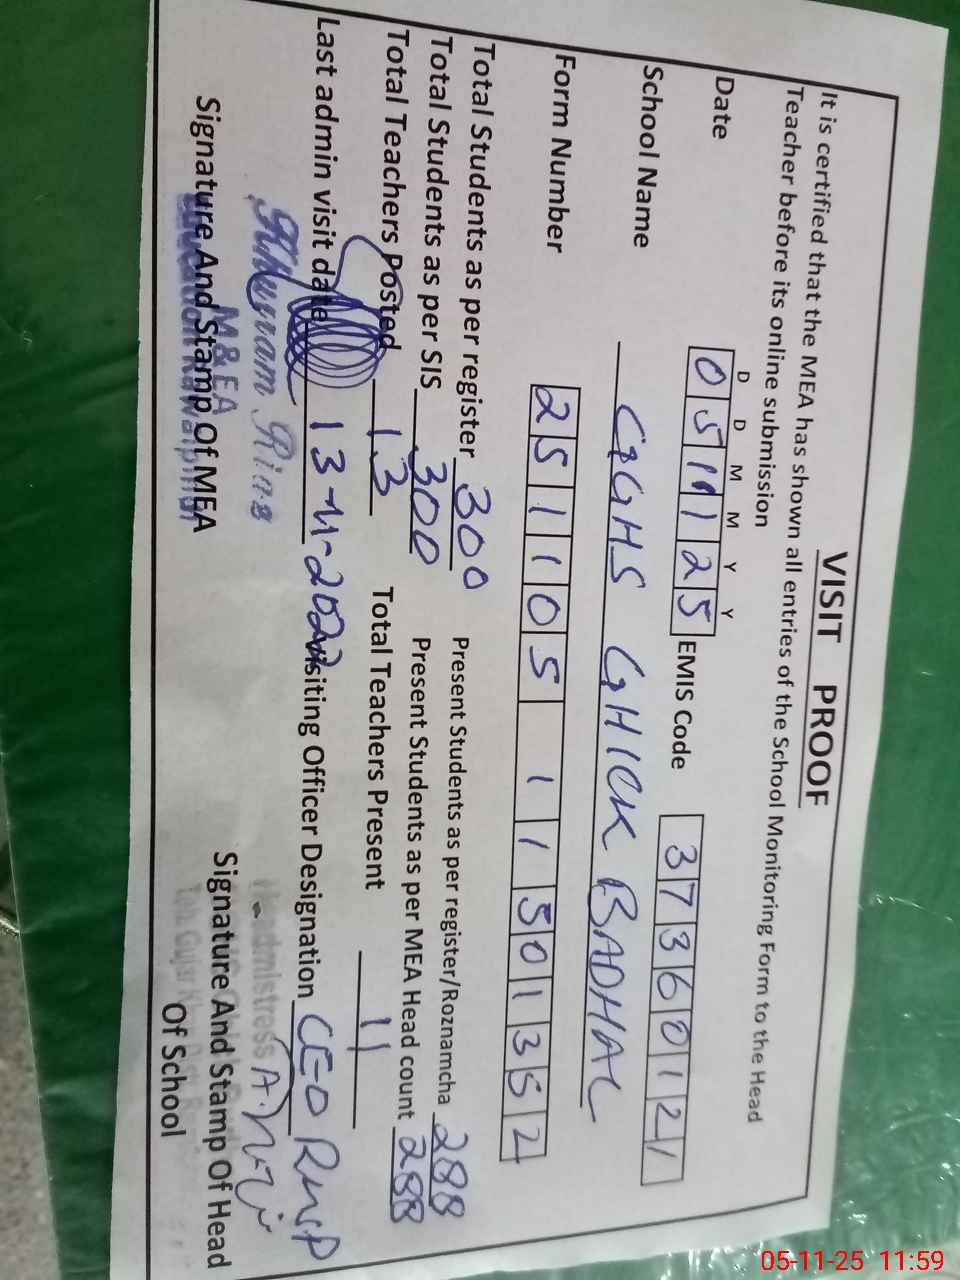 VISIT PROOF
It is certified that the MEA has shown all entries of the School Monitoring Form to the Head
Teacher before its online submission
D D M M Y Y
Date 05 11 25 EMIS Code 37360121
School Name GGHS GHICK BADHAL
Form Number 251105 11501352
Total Students as per register 300 Present Students as per register/Roznamcha 288
Total Students as per SIS 300 Present Students as per MEA Head count 288
Total Teachers Posted 13 Total Teachers Present 11
Last admin visit date 13-11-202 Visiting Officer Designation CEO RWP
Signature And Stamp Of MEA
M&EA
Signature And Stamp Of Head
Of School
Headmistress
05-11-25 11:59